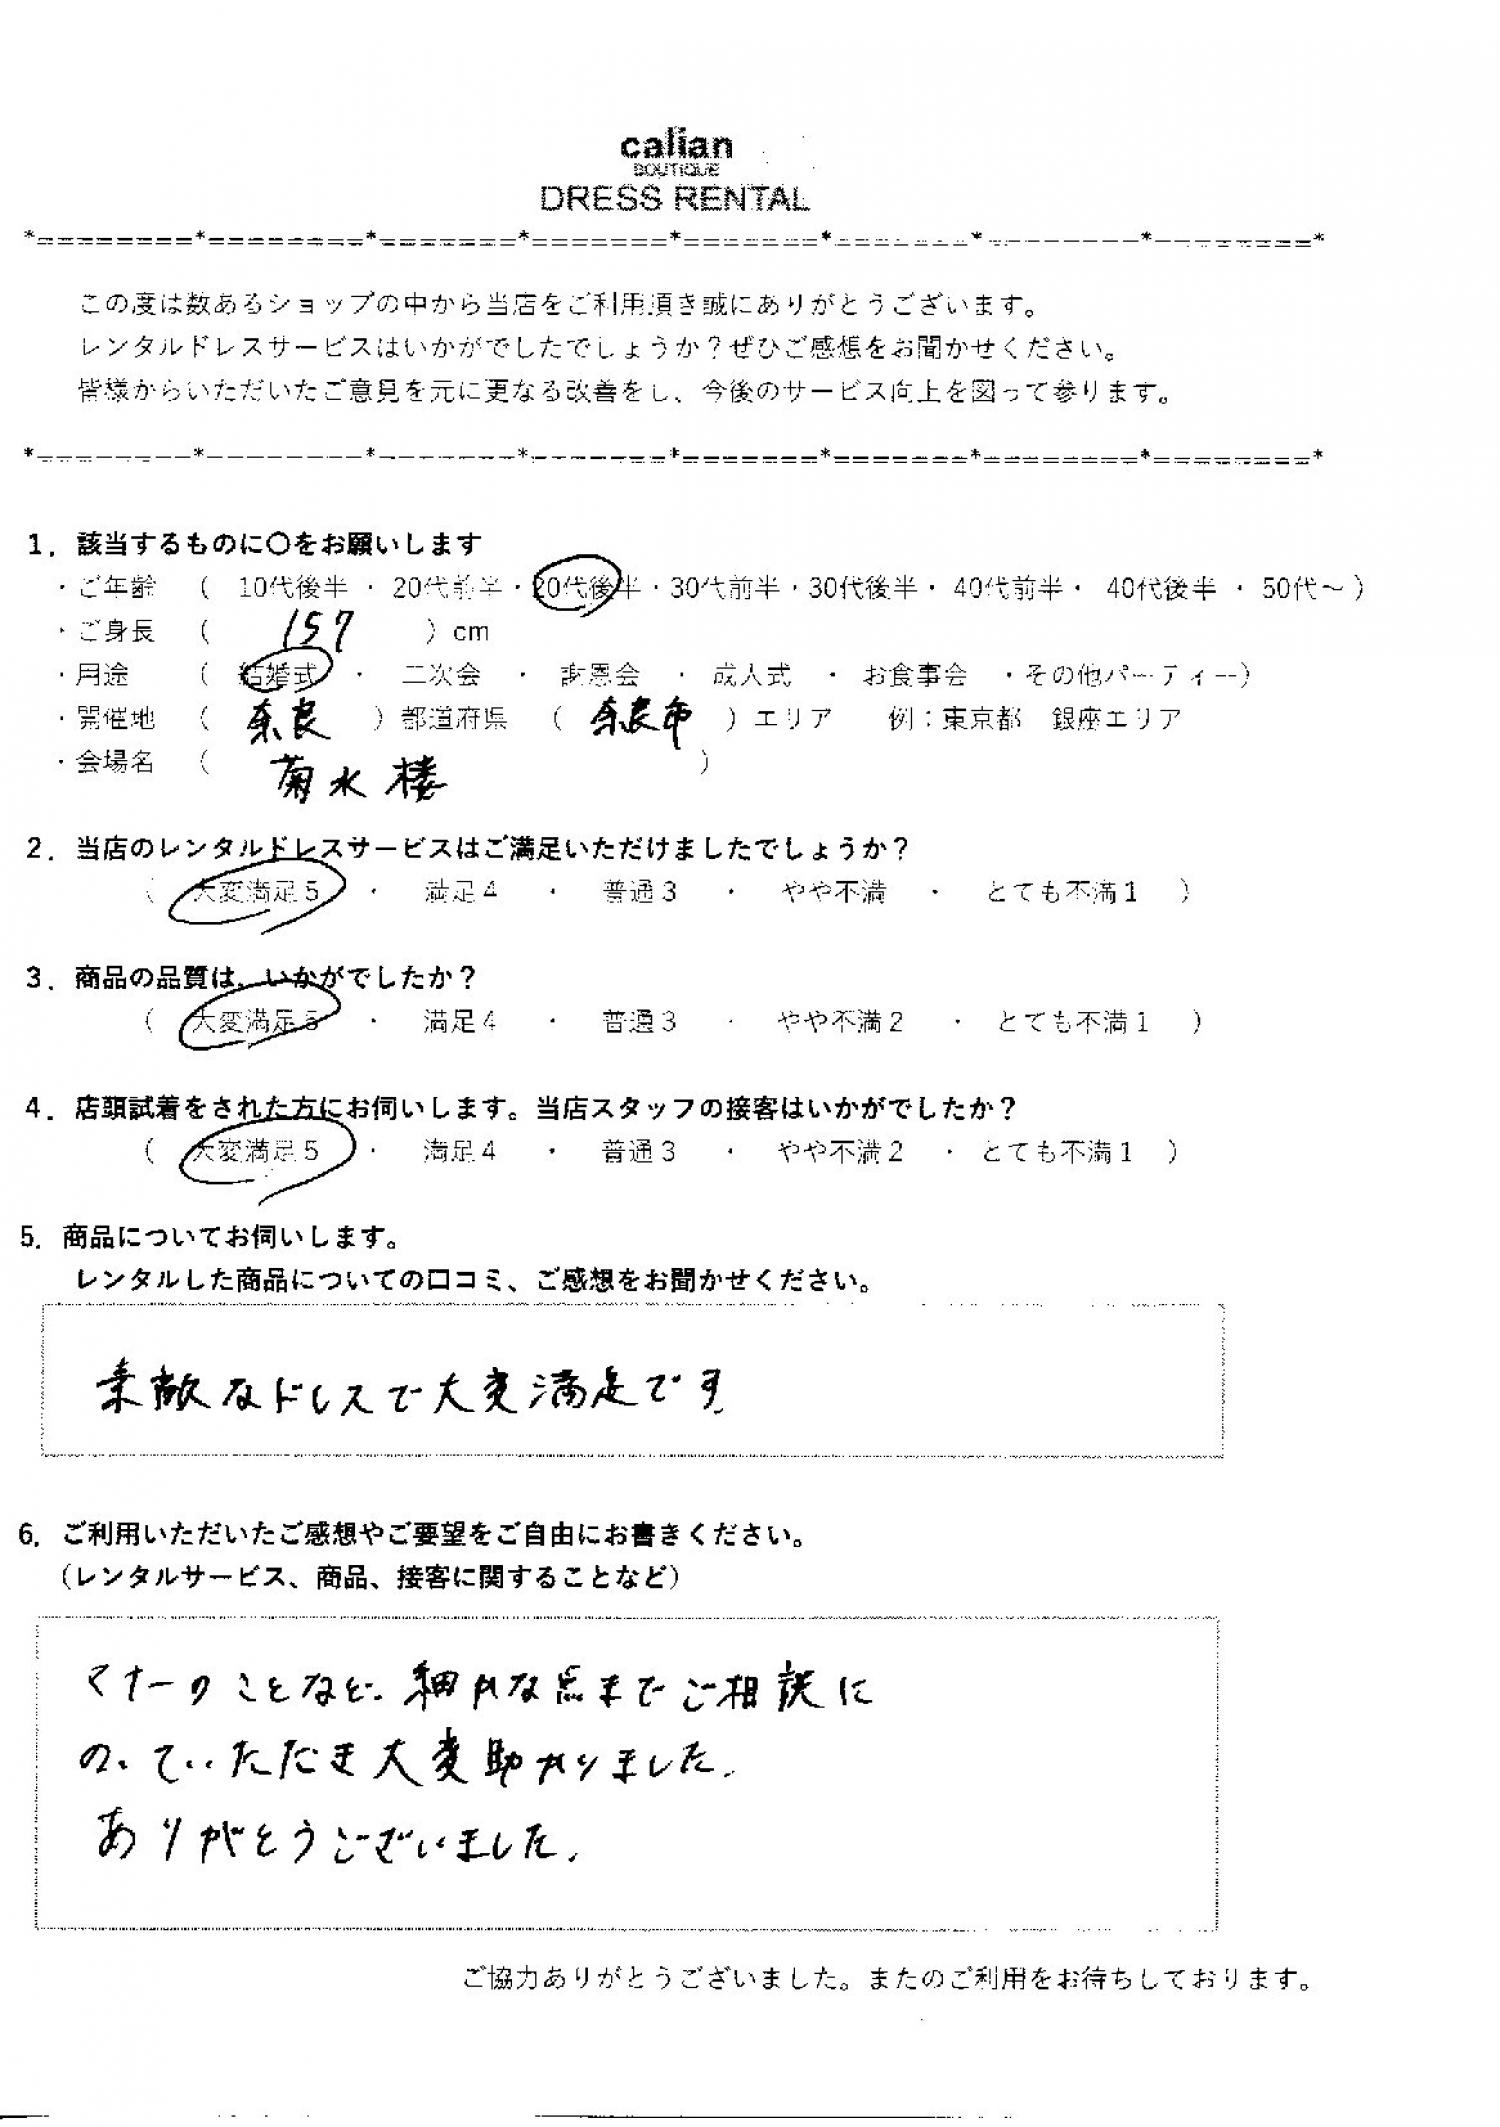 calian
BOUTIQUE
DRESS RENTAL
*========*========*=======*=======*=======*=======*========*========*
この度は数あるショップの中から当店をご利用頂き誠にありがとうございます。
レンタルドレスサービスはいかがでしたでしょうか？ぜひご感想をお聞かせください。
皆様からいただいたご意見を元に更なる改善をし、今後のサービス向上を図って参ります。
*========*========*=======*=======*=======*=======*========*========*
1．該当するものに〇をお願いします
・ご年齢 （ 10代後半 ・ 20代前半・20代後半・30代前半・30代後半・ 40代前半・ 40代後半 ・ 50代～ ）
・ご身長 （ 157 ）cm
・用途 （ 結婚式 ・ 二次会 ・ 謝恩会 ・ 成人式 ・ お食事会 ・その他パーティー）
・開催地 （ 奈良 ）都道府県 （ 奈良市 ）エリア 例：東京都 銀座エリア
・会場名 （ 菊水楼 ）
2．当店のレンタルドレスサービスはご満足いただけましたでしょうか？
（ 大変満足５ ・ 満足４ ・ 普通３ ・ やや不満 ・ とても不満１ ）
3．商品の品質は、いかがでしたか？
（ 大変満足５ ・ 満足４ ・ 普通３ ・ やや不満２ ・ とても不満１ ）
4．店頭試着をされた方にお伺いします。当店スタッフの接客はいかがでしたか？
（ 大変満足５ ・ 満足４ ・ 普通３ ・ やや不満２ ・ とても不満１ ）
5．商品についてお伺いします。
レンタルした商品についての口コミ、ご感想をお聞かせください。
素敵なドレスで大変満足です
6．ご利用いただいたご感想やご要望をご自由にお書きください。
（レンタルサービス、商品、接客に関することなど）
マナーのことなど、細かな点までご相談に
のっていただき大変助かりました。
ありがとうございました。
ご協力ありがとうございました。またのご利用をお待ちしております。